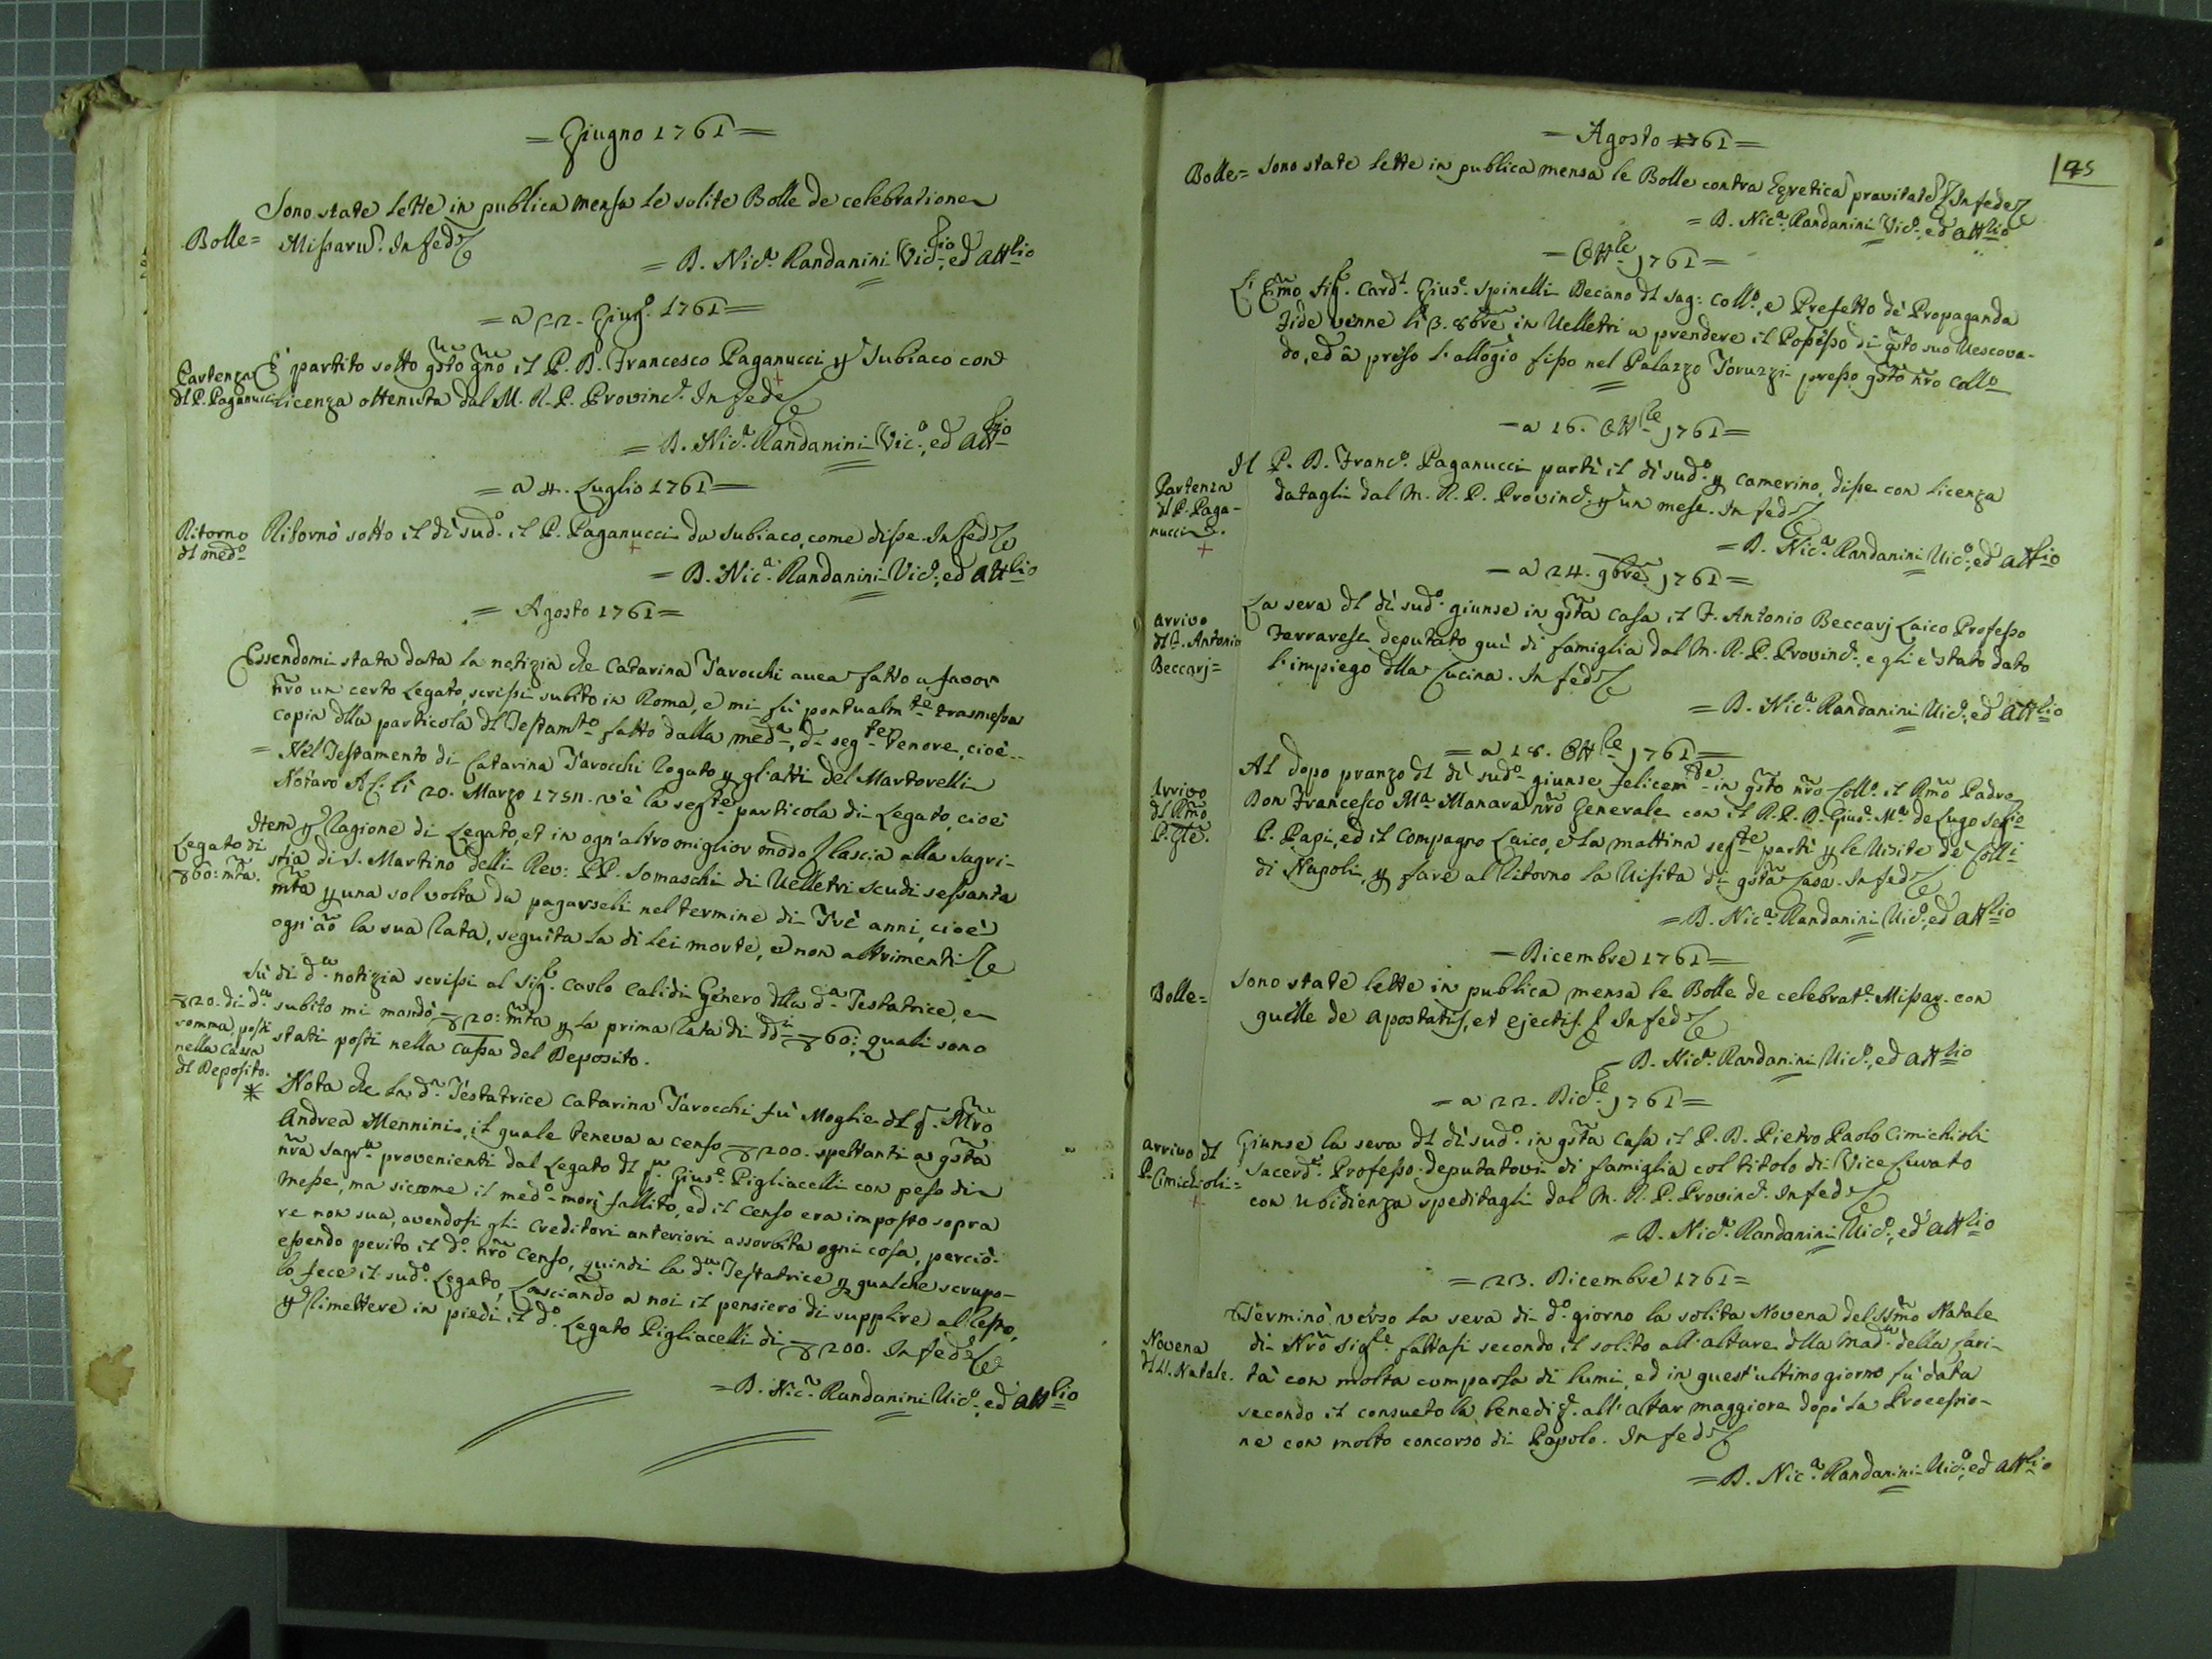 = Giugno 1761 =
Sono state lette in publica mensa le solite Bolle de celebratione
Bolle = Missarum. In fede
= D. Nic.a Randanini Vic.o, ed Att.rio
= a 22. Giug.o 1761 =
È partito sotto gsto gno il P. D. Francesco Paganucci p Subiaco con
Partenza
dl P. Paganucci
licenza ottenuta dal M. R. P. Provinc.e In fede
= D. Nic.a Randanini Vic.o, ed Att.rio
= a 4. Luglio 1761 =
Ritorno
dl med.o
Ritornò sotto il dì sud.o il P. Paganucci da Subiaco, come disse. In fede
= D. Nic.a Randanini Vic.o, ed Att.rio
= Agosto 1761 =
Essendomi stata data la notizia che Catarina Tarocchi avea fatto a favor
nro un certo Legato, scrissi subito in Roma, e mi fù pontualm.te trasmessa
copia dlla particola dl Testam.to fatto dalla med.a, d seg.te tenore, cioè
= Nel Testamento di Catarina Tarocchi rogato p gl'atti del Martorelli
Notaro A.C. li 20. Marzo 175n. v'è la seg.te particola di Legato, cioè
Item p Ragione di Legato, et in ogn'altro miglior modo lascia alla Sagri-
Legato di
60: mta.
stia di S. Martino delli Rev: PP. Somaschi di Velletri scudi sessanta
mta p una sol volta da pagarseli nel termine di Trè anni, cioè
ogn'ano la sua Rata, seguita la di lei morte, e non altrimenti
Su di d.a notizia scrissi al Sig.r Carlo Calidi Genero dlla d.a Testatrice, e
20. di d.a
somma, posti
nella Cassa
dl Deposito.
subito mi mandò 20: mta p la prima Rata di dd.i 60:, quali sono
stati posti nella Cassa del Deposito.
* Nota che la d.a Testatrice Catarina Tarocchi fù Moglie dl q. Mro
Andrea Mennini, il quale teneva a censo 200. spettanti a gsta
nra Sagr.a provenienti dal Legato dl q. Gius.e Pigliacelli con peso di
Messe, ma siccome il med.o morì fallito, ed il Censo era imposto sopra
re non sua, avendosi gli Creditori anteriori assorbita ogni cosa, perciò
essendo perito il d.o nro Censo, quindi la d.a Testatrice p qualche scrupo-
lo fece il sud.o Legato, Lasciando a noi il pensiero di supplire al resto,
p Rimettere in piedi il d.o Legato Pigliacelli di 200. In fede
= D. Nic.a Randanini Vic.o, ed Att.rio
145
= Agosto 1761 =
Bolle = Sono state lette in publica mensa le Bolle contra Hereticã pravitatẽ. In fede
= D. Nic.a Randanini Vic.o, ed Att.rio
= Ott.bre 1761 =
L' Emo Sig.r Card.l Gius.e Spinelli Decano dl Sag: Coll.o, e Prefetto de Propaganda
Fide venne li 3. 8bre in Velletri a prendere il Possesso di gsto suo Vescova-
do, ed à preso l'allogio fisso nel Palazzo Toruzzi presso gsto nro Coll.o
= a 16. Ott.bre 1761 =
Partenza
dl P. Paga-
nucci
Il P. D. Franc.o Paganucci partì il dì sud.o p Camerino, disse con licenza
datagli dal M. R. P. Provinc.e p un mese. In fede
= D. Nic.a Randanini Vic.o, ed Att.rio
= a 24. 9bre 1761 =
Arrivo
dl F. Antonio
Beccarj =
La sera dl dì sud.o giunse in gsta Casa il F. Antonio Beccarj Laico Professo
Ferrarese deputato quì di famiglia dal M. R. P. Provinc.e e gli è stato dato
l'impiego dlla Cucina. In fede
= D. Nic.a Randanini Vic.o, ed Att.rio
= a 18. Ott.bre 1761 =
Arrivo
dl Rmo
P. Gle.
Al dopo pranzo dl dì sud.o giunse felicem.te in gsto nro Coll.o il Rmo Padre
Don Francesco M.a Manara nro Generale con il R. P. D. Gius.e M.a de Lugo Seg.rio
P. Papi, ed il Compagno Laico, e la mattina seg.te partì p le Visite de Coll.i
di Napoli, p fare al Ritorno la Visita di gsta Casa. In fede
= D. Nic.a Randanini Vic.o, ed Att.rio
= Dicembre 1761 =
Bolle =
Sono state lette in publica mensa le Bolle de celebrat.e Missar. con
quelle de Apostatis, et ejectis. In fede
= D. Nic.a Randanini Vic.o, ed Att.rio
= a 22. Dic.bre 1761 =
Arrivo dl
P. Cimichioli =
Giunse la sera dl dì sud.o in gsta Casa il P. D. Pietro Paolo Cimichioli
Sacerd.e Professo deputatovi di famiglia col titolo di Vice Curato
con ubidienza speditagli dal M. R. P. Provinc.e In fede
= D. Nic.a Randanini Vic.o, ed Att.rio
= 23. Dicembre 1761 =
Novena
dl SS. Natale.
Terminò verso la sera di d.o giorno la solita Novena del SSmo Natale
di Nro Sig.re fattasi secondo il solito all'altare dlla Mad.a della Cari-
tà con molta comparsa di lumi, ed in quest'ultimo giorno fù data
secondo il consueto la benediz.e all'altar maggiore dopò la Processio-
ne con molto concorso di Popolo. In fede
= D. Nic.a Randanini Vic.o, ed Att.rio